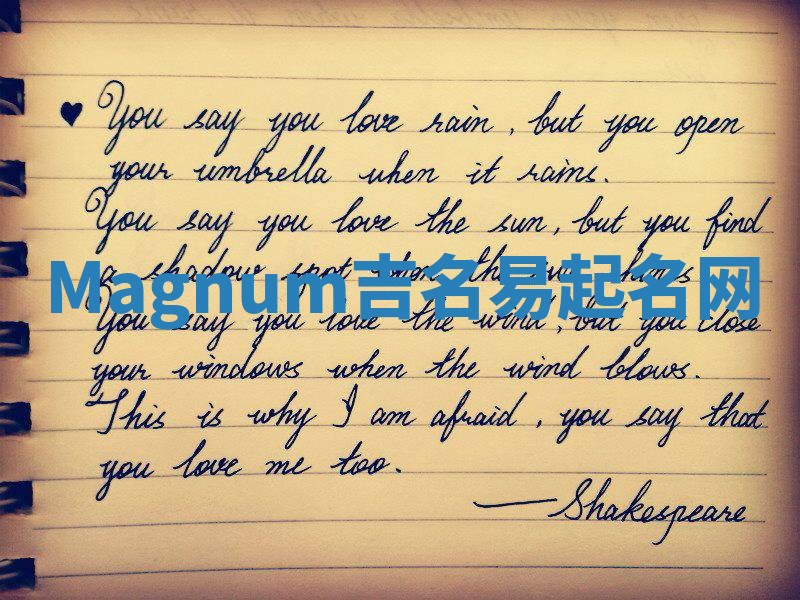 ♥ You say you love rain, but you open
your umbrella when it rains.
You say you love the sun, but you find
a shadow spot when the sun shines
Magnum吉名易起名网
You say you love the wind, but you close
your windows when the wind blows.
This is why I am afraid, you say that
you love me too.
—Shakespeare